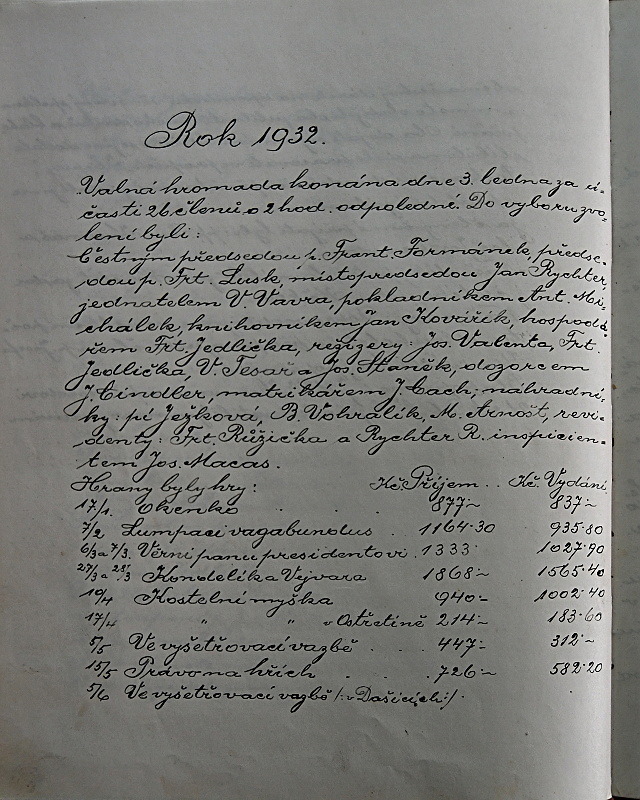 Rok 1932.
Valná hromada konána dne 3. ledna za ú-
časti 26 členů o 2 hod. odpolední. Do výboru zvo-
leni byli:
Čestným předsedou p. Frant. Formánek, předse-
dou p. Frt. Lusk, místopředsedou Jan Rychter,
jednatelem V. Vavra, pokladníkem Ant. Mei-
chálek, knihovníkem Jan Kovářík, hospodá-
řem Frt. Jedlička, režizery: Jos. Valenta, Frt.
Jedlička, V. Tesař a Jos. Staněk, dozorcem
J. Cindler, matrikářem J. Cach, náhradní-
ky: pí Ježková, B. Vohralík, M. Arnošt, revi-
denty: Frt. Růžička a Rychter R. inspicien-
tem Jos. Macas.
Hrany byly hry: Kč. Příjem . . Kč. Vydání.
17/1. Okénko . . 877·~ 837·~
7/2 Lumpaci vagabundus . . 1164·30 935·80
6/3 a 7/3. Věrni panu presidentovi . 1333· 1027·90
27/3 a 28/3 Kondelík a Vejvara 1868·~ 1565·40
10/4 Kostelní myška 940·~ 1002·40
17/4 " " v Ostřetíně 214·~ 183·60
5/5 Ve vyšetřovací vazbě . . . 447·~ 312·~
15/5 Právo na hřích . . . . 726·~ 582·20
5/6 Ve vyšetřovací vazbě /: v Dašicích :/.